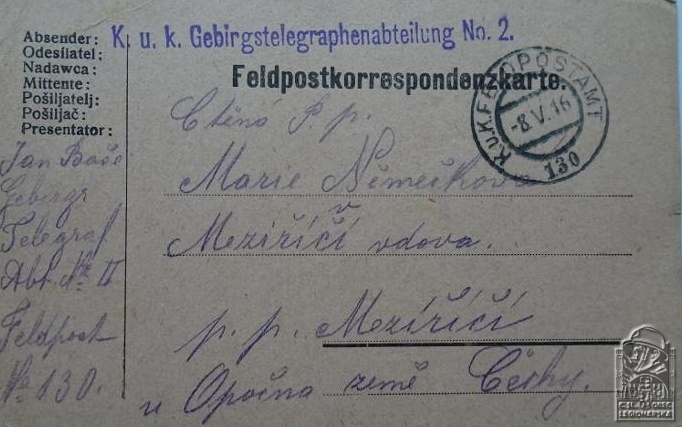 Absender:
Odesílatel:
Nadawca:
Mittente:
Pošiljatelj:
Pošiljač:
Presentator:
K. u. k. Gebirgstelegraphenabteilung No. 2.
Feldpostkorrespondenzkarte.
K.u.K. FELDPOSTAMT
-8.V.16
130
Jan
Gebirgs
Telegraf
Abt. No II
Feldpost
No 130.
Ctěná P. p.
Marie Němečkova
Meziříčí vdova.
p. p. Meziříčí
u Opočna země Čechy.
LEGIONÁŘSKÁ